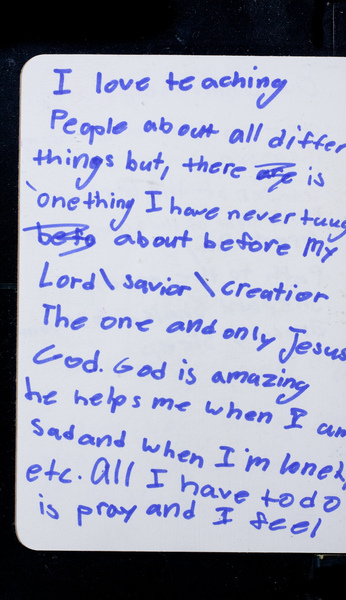 I love teaching
People about all differ
things but, there is
onething I have never taug
about before My
Lord\savior\creatior
The one and only Jesus
God. God is amazing
he helps me when I am
sad and when I'm lonely,
etc. All I have to do
is pray and I feel